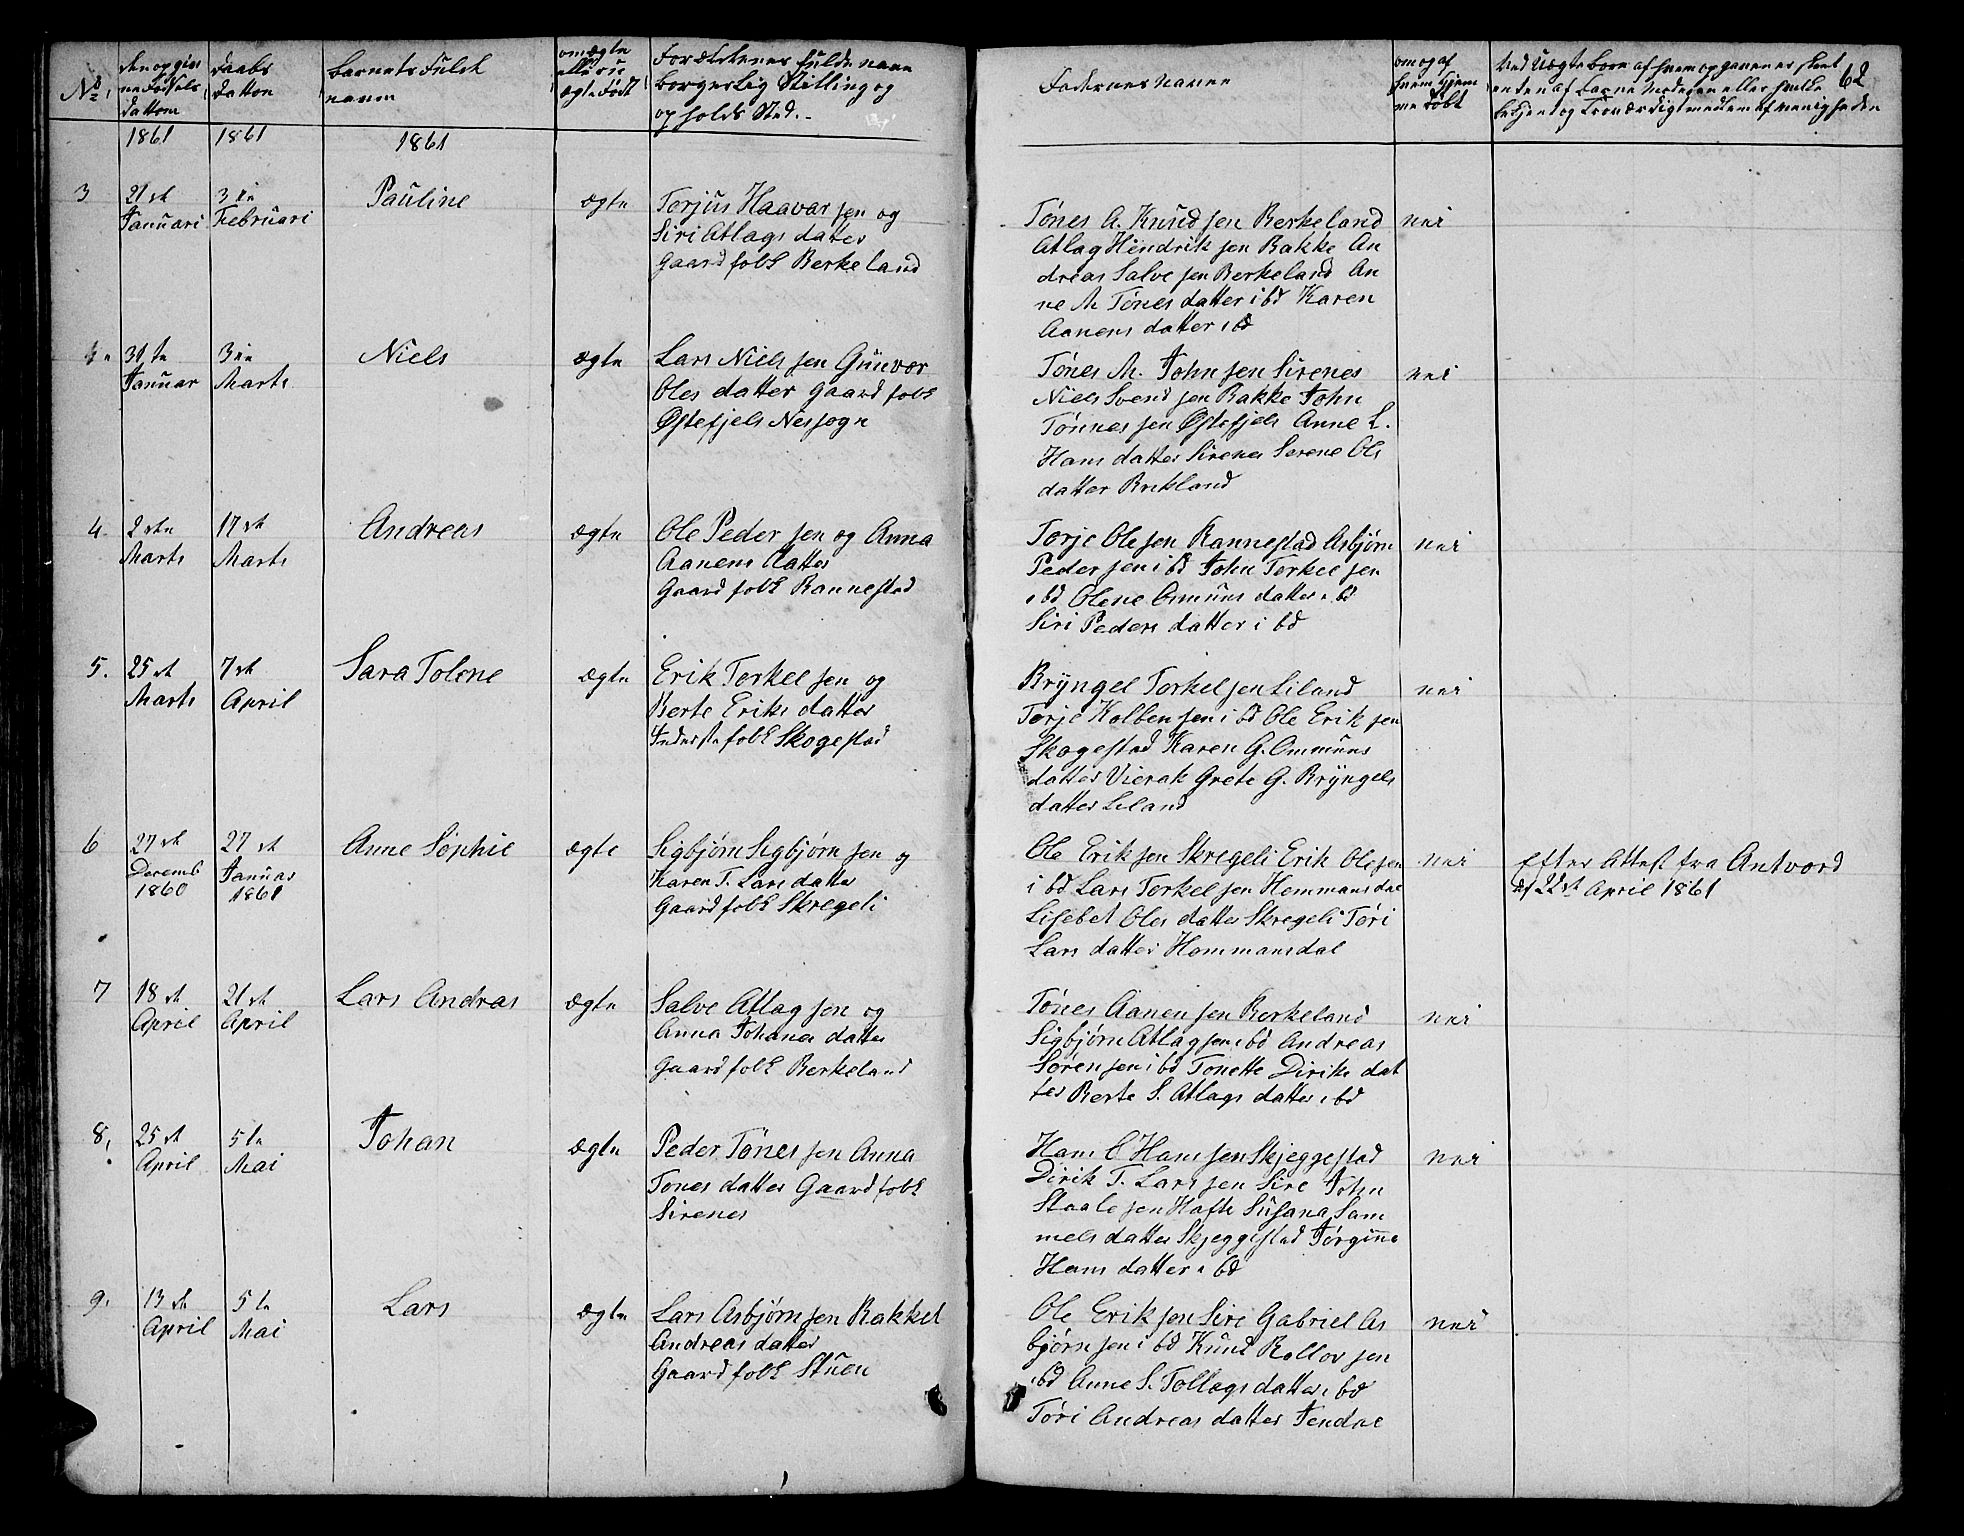 No.
den og gin
ne Fødsels
dattom
Daabs
datton
Barnets Fulde
navn
om ægte
eller ei
ægte Født
Forældrenes fulde navn
borgerlig Stilling og
opholds Sted.
Faddernes navne
om og af
hvem hjem
me døbt
ved uægte Børn af hvem opgaven er skeet
enten af Barne moderen eller hvilke 62
bekjent og Troværdigt medlem af menigheden
1861
1861
1861
3
21 de
Januari
3 die
Februari
Pauline
ægte
Torjus Haavar sen og
Siri Atlags datter
Gaard folk Berkeland
Tønes A. Knud sen Berkeland
Atlag Hendrik sen Bakke An
dreas Salve sen Berkeland An
ne M Tønes datter ibd Karen
Aanens datter ibd
nei
4.
31 te
Januar
3 die
Marts
Niels
ægte
Lars Niels sen Gunvor
Oles datter Gaard folk
Østefjels Nessogn
Tønes M. John sen Sirenes
Niels Svend sen Bakke John
Tønnes sen Østefjels Anne L.
Hans datter Sirenes Serene Ols
datter Birkland
nei
4.
2 den
Marts
17 de
Marts
Andreas
ægte
Ole Peder sen og Anna
Aanens datter
Gaard folk Rannestad
Torje Ole sen Rannestad Asbjørn
Peder sen ibd John Torkel sen
ibd Olene Ommuns datter ibd
Siri Peders datter i bd
nei
5.
25 de
Marts
7 de
April
Sara Tolene
ægte
Erik Torkel sen og
Berte Eriks datter
Inderste folk Skogestad
Bryngel Torkel sen Liland
Torje Kolben sen i bd Ole Erik sen
Skogestad Karen G. Ommuns
datter Vierak Grete G. Bryngels
datter Liland
nei
6
27 de
Decemb
1860
27 de
Januar
1861
Anne Sophie
ægte
Sigbjørn Sigbjørn sen og
Karen T. Lars datter
Gaard folk Skregeli
Ole Erik sen Skregeli Erik Ole sen
i bd Lars Torkel sen Hommansdal
Lisebet Oles datter Skregeli Tøri
Lars datter Hommansdal
nei
Efter Attest fra Antvord
af 22de April 1861
7
18 de
April
21 de
April
Lars Andras
ægte
Salve Atlag sen og
Anna Johanes datter
Gaard folk Berkeland
Tønes Aanen sen Berkeland
Sigbjørn Atlag sen ibd Andreas
Søren sen i bd Tonette Diriks dat
ter Berte S. Atlags datter ibd
nei
8.
25 de
April
5 te
Mai
Johan
ægte
Peder Tønes sen Anna
Tones datter Gaard folk
Sirenes
Hans C Hans sen Skjeggestad
Dirik T. Lars sen Sire John
Staale sen Hafte Susana Sam
mels datter Skjeggestad Jørginne
Hans datter i bd
nei
9.
13 de
April
5 te
Mai
Lars
ægte
Lars Asbjørn sen Rakkel
Andreas datter
Gaard folk Stuen
Ole Erik sen Sire Gabriel As
bjørn sen i bd Knud Rollov sen
ibd Anne S. Tollags datter ibd
Tøri Andreas datter Fendne
nei